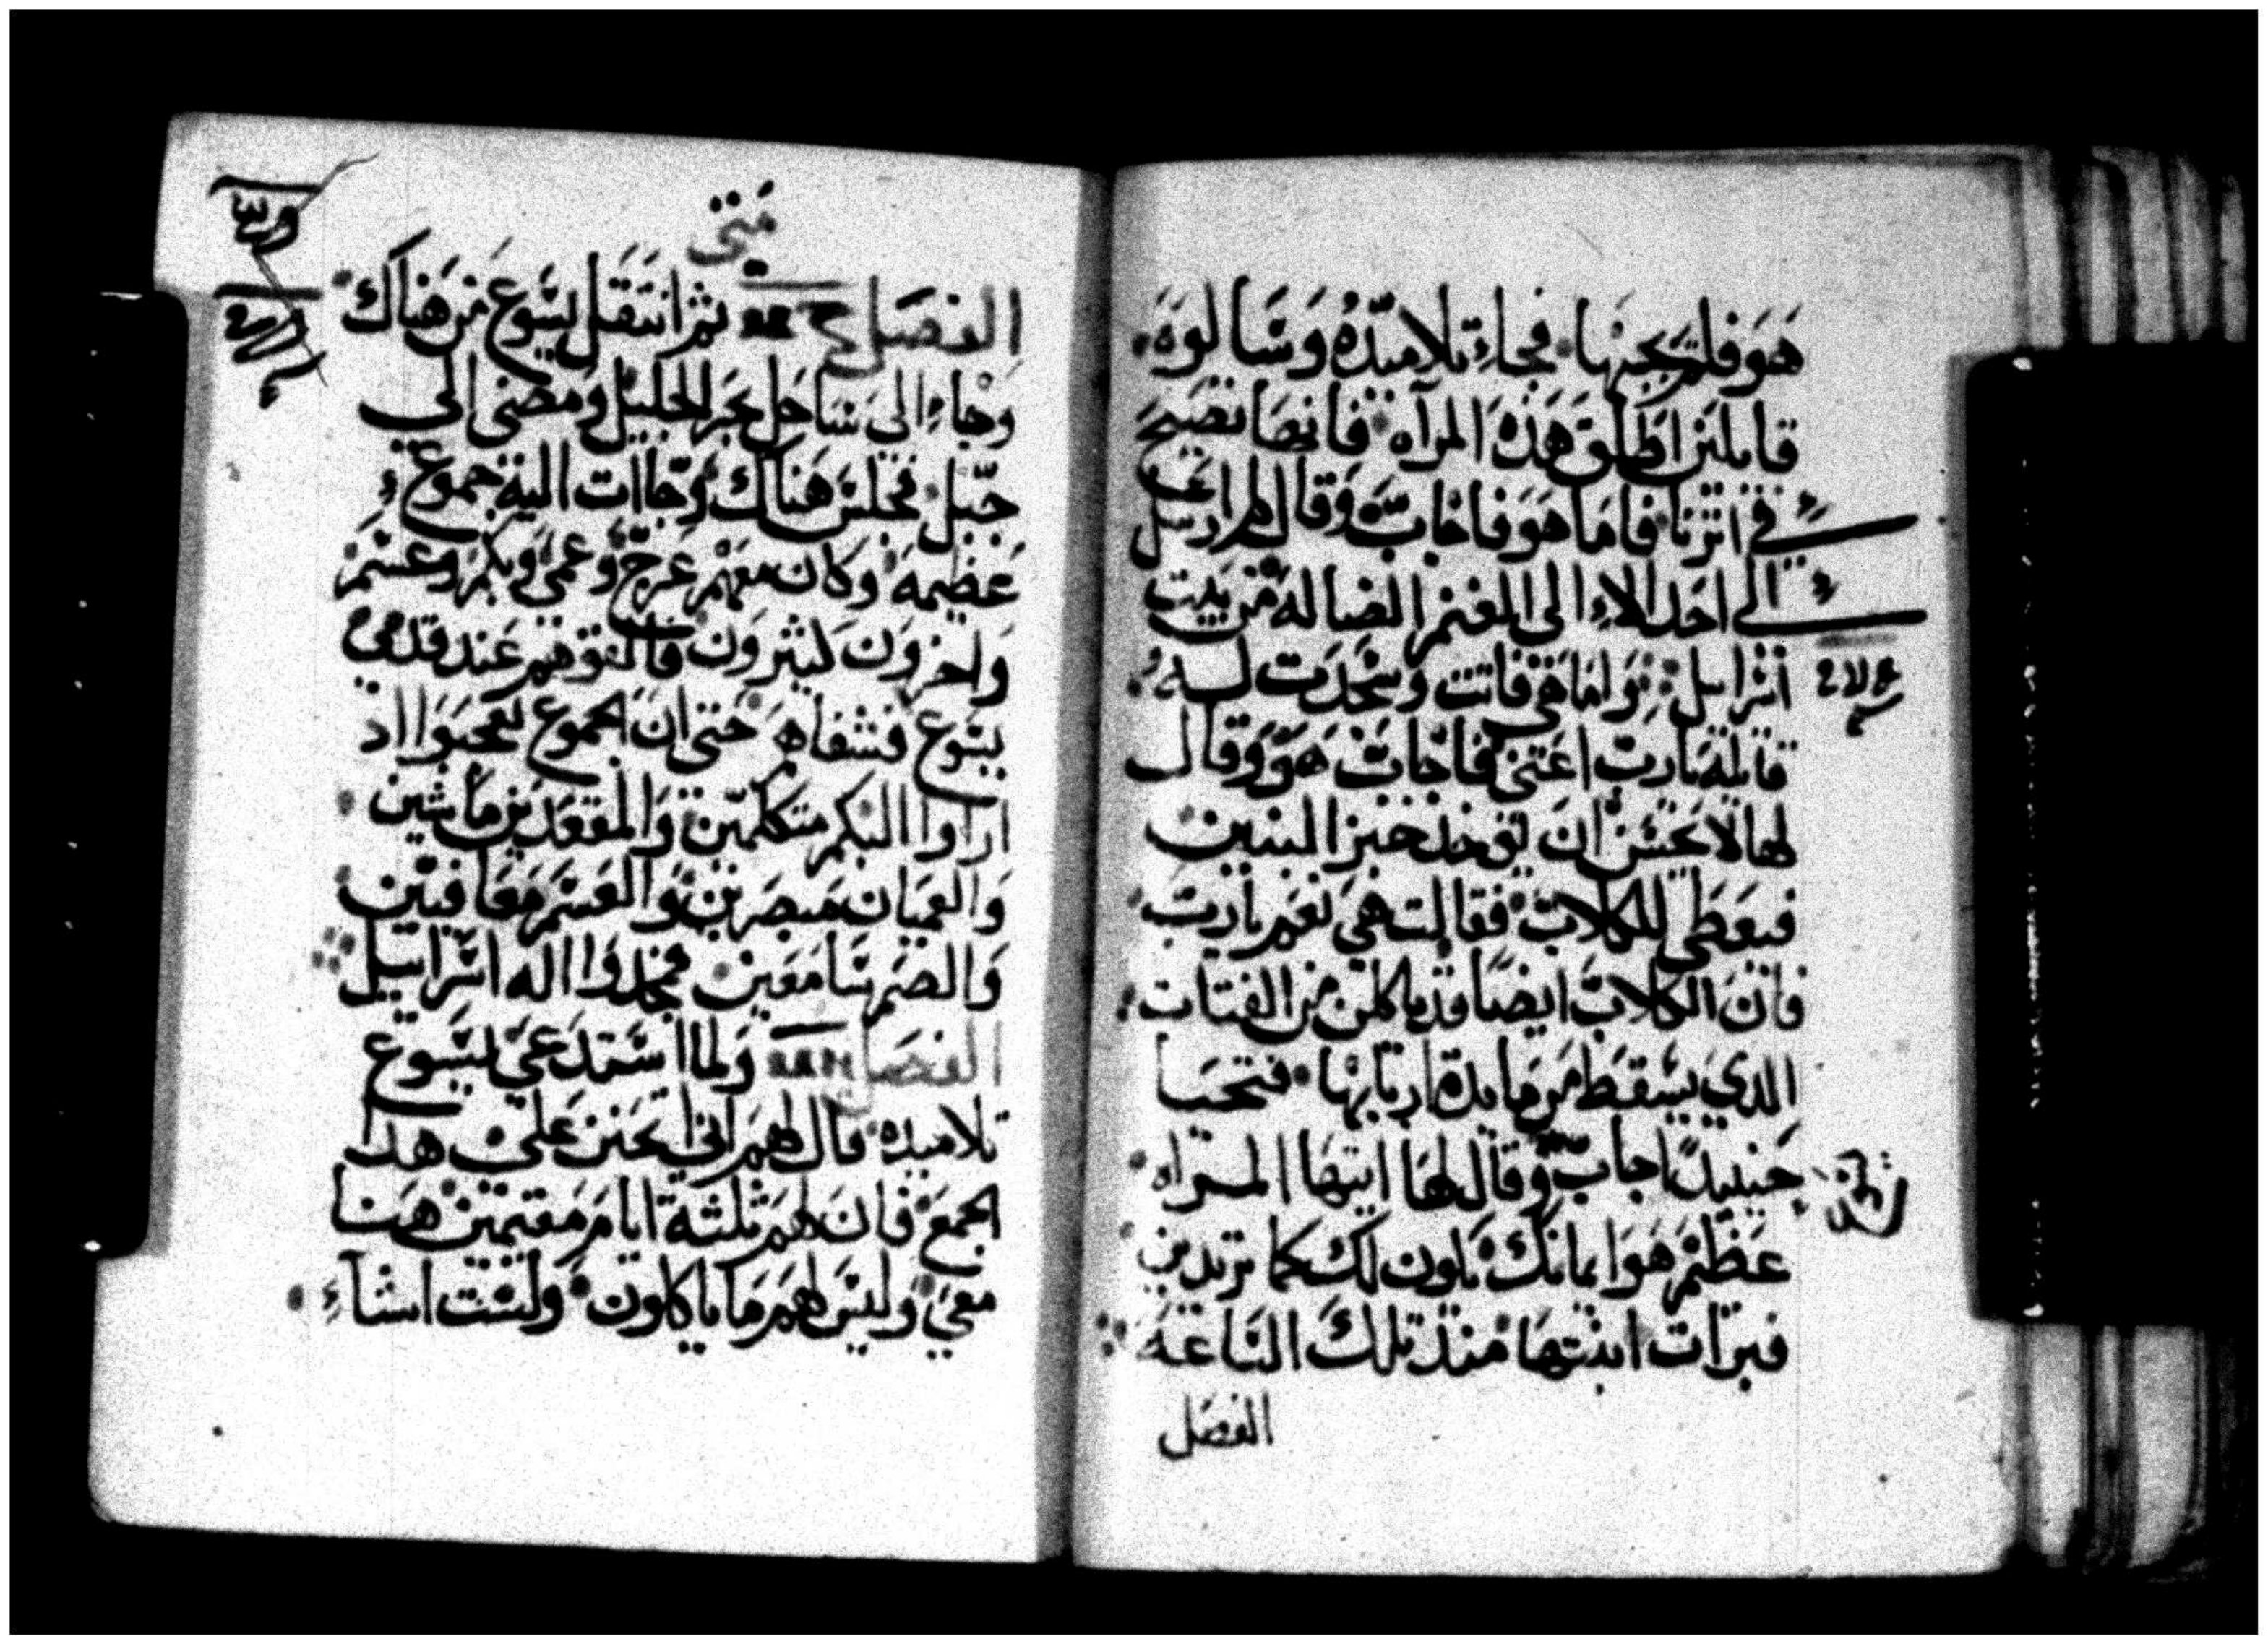 هو فلم يجبها فجاء تلاميذه وسالوه
قايلين اطلق هذه المرآه فانها تصيح
في اثرنا فاما هو فاجاب وقال لهم ارسل
الي احد الاء الى الغنم الضاله من بيت
اسراييل واما هي فاتت وسجدت له
قايلة يارب اعني فاجاب هو وقال
لها لا يحسن ان يوخذ خبز البنين
فيعطى للكلاب فقالت هي نعم يارب
فان الكلاب ايضا قد ياكلن من الفتات
الدي يسقط من مايدة اربابها فتحيا
حينيد اجاب وقال لها ايتها المراه
عظيم هو ايمانك يكون لك كما تريدين
فبرات ابنتها منذ تلك الساعة
الفصل
متى
الفصل ثم انتقل يسوع من هناك
وجاء الي ساحل بحر الجليل ومضى الي
جبل فجلس هناك وجاات اليه جموع
عضيمه وكان معهم عرج وعمي وبكم وعسم
واخرون كثيرون فالقوهم عند قدمي
يسوع فشفاهم حتى ان الجموع تعجبوا اد
اراوا البكم متكلمين والمقعدين ماشين
والعميان مبصرين والعسم معافيين
والصم سامعين فمجدوا اله اسراييل
الفصل ولما استدعي يسوع
تلاميده قال لهم اني اتحنن علي هدا
الجمع فان لهم ثلثة ايام مقيمين هنا
معي وليس لهم ما ياكلون ولست اشآء